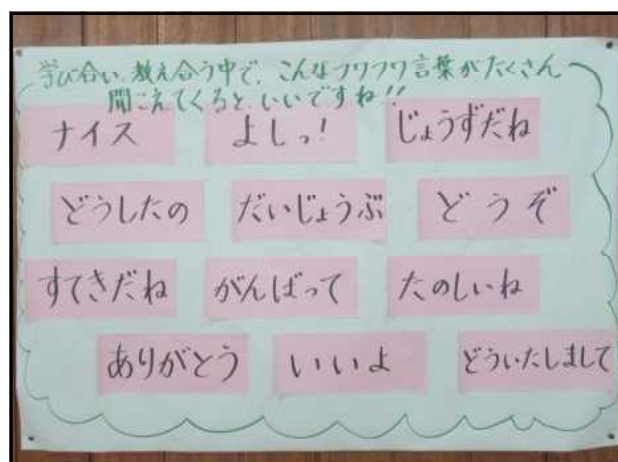 学び合い、教え合う中で、こんなフワフワ言葉がたくさん
聞こえてくると、いいですね!!
ナイス よしっ! じょうずだね
どうしたの だいじょうぶ どうぞ
すてきだね がんばって たのしいね
ありがとう いいよ どういたしまして